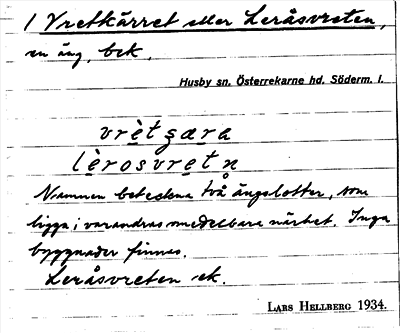 1 Vretkärret eller Leråsvreten,
en äng, bek.
Husby sn. Österrekarne hd. Söderm. l.
vrètʒæra
lèrosvretn̥
Namnen beteckna två ängslotter, som
ligga i varandras omedelbara närhet. Inga
byggnader finnas.
Leråsvreten ek.
LARS HELLBERG 1934.